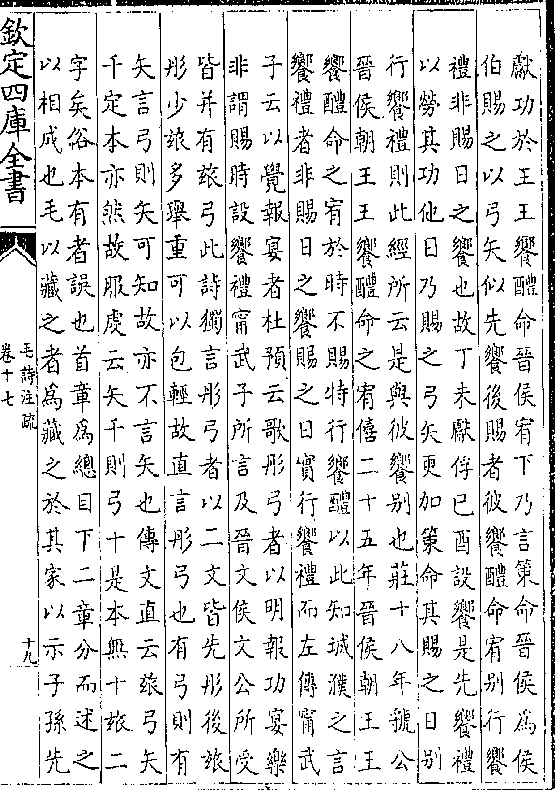 獻功於王王饗醴命晉侯宥下乃言策命晉侯為侯
伯賜之以弓矢似先饗後賜者彼饗醴命宥别行饗
禮非賜日之饗也故丁未獻俘已酉設饗是先饗禮
以勞其功他日乃賜之弓矢更加策命其賜之日别
行饗禮則此經所云是與彼饗别也莊十八年虢公
晉侯朝王王饗醴命之宥僖二十五年晉侯朝王王
饗醴命之宥於時不賜特行饗醴以此知城濮之言
饗禮者非賜日之饗賜之日實行饗禮而左傳甯武
子云以覺報宴者杜預云歌彤弓者以明報功宴樂
非謂賜時設饗禮甯武子所言及晉文侯文公所受
皆并有玈弓此詩獨言彤弓者以二文皆先彤後玈
彤少玈多舉重可以包輕故直言彤弓也有弓則有
矢言弓則矢可知故亦不言矢也傳文直云玈弓矢
千定本亦然故服虔云矢千則弓十是本無十玈二
字矣俗本有者誤也首章為總目下二章分而述之
以相成也毛以藏之者為藏之於其家以示子孫先
欽定四庫全書
毛詩注疏
卷十七
十九